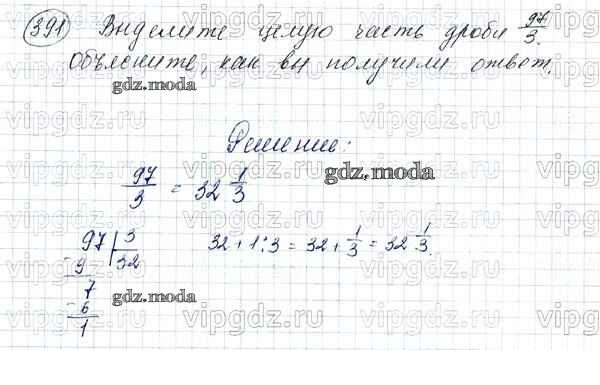 391 Выделите целую часть дроби 97/3.
Объясните, как вы получили ответ.
gdz.moda
Решение:
97/3 = 32 1/3
gdz.moda
97 | 3
- 9 | 32
7
- 6
1
32 + 1 : 3 = 32 + 1/3 = 32 1/3.
gdz.moda
vipgdz.ru